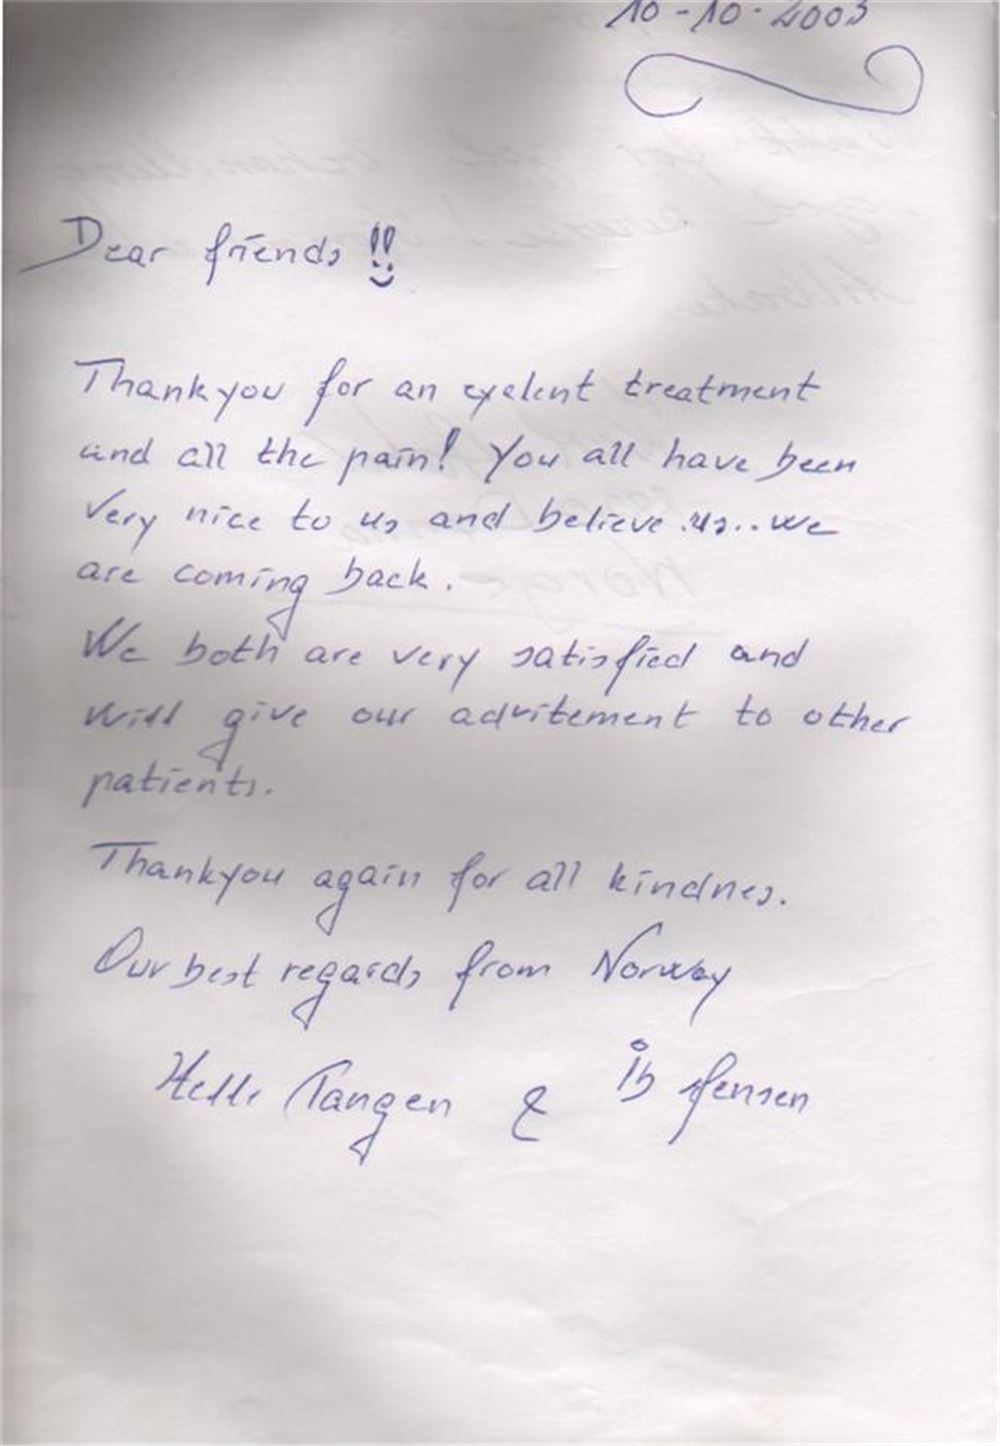 10-10-2003
Dear friends !!
Thankyou for an exelent treatment
and all the pain! You all have been
very nice to us and believe us.. we
are coming back.
We both are very satisfied and
will give our advritement to other
patients.
Thankyou again for all kindnes.
Our best regards from Norway
Helle Tangen & Ib Jensen